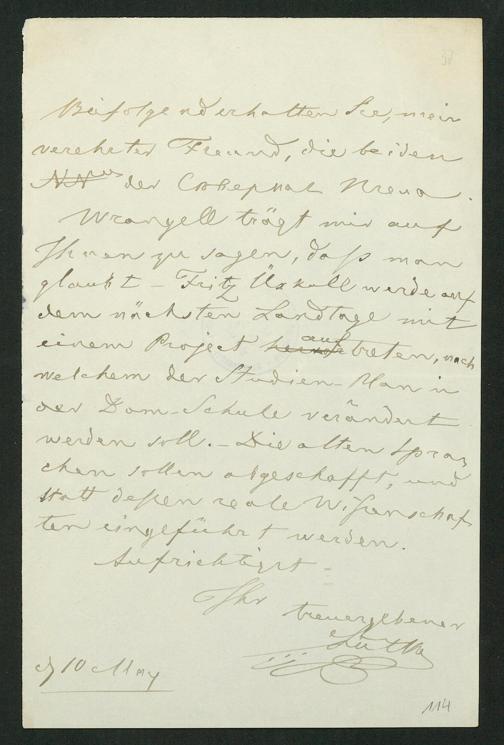 38
Beifolgend erhalten Sie, mein
verehrter Freund, die beiden
NN der Северная Пчела.
Wrangell trägt mir auf
Ihnen zu sagen, daß man
glaubt – Fritz Üxküll werde auf
dem nächsten Landtage mit
einem Project auftreten, nach
welchem der Studien-Plan in
der Dom-Schule verändert
werden soll. – Die alten Spra-
chen sollen abgeschafft, und
statt deßen reale Wißenschaf
ten eingeführt werden.
Aufrichtigst –
Ihr treuergebener
Lütke
10 May
114